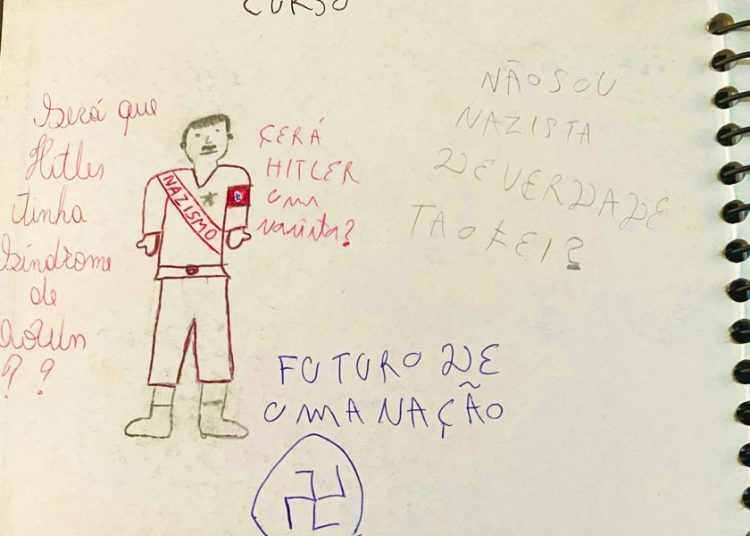 CURSO
Será que
Hitler
tinha
Síndrome
de
Down
? ?
NAZISMO
ÇERÁ
HITLER
uma
nazista?
NÃO SOU
NAZISTA
DE VERDADE
TAOKEI?
FUTURO DE
UMA NAÇÃO